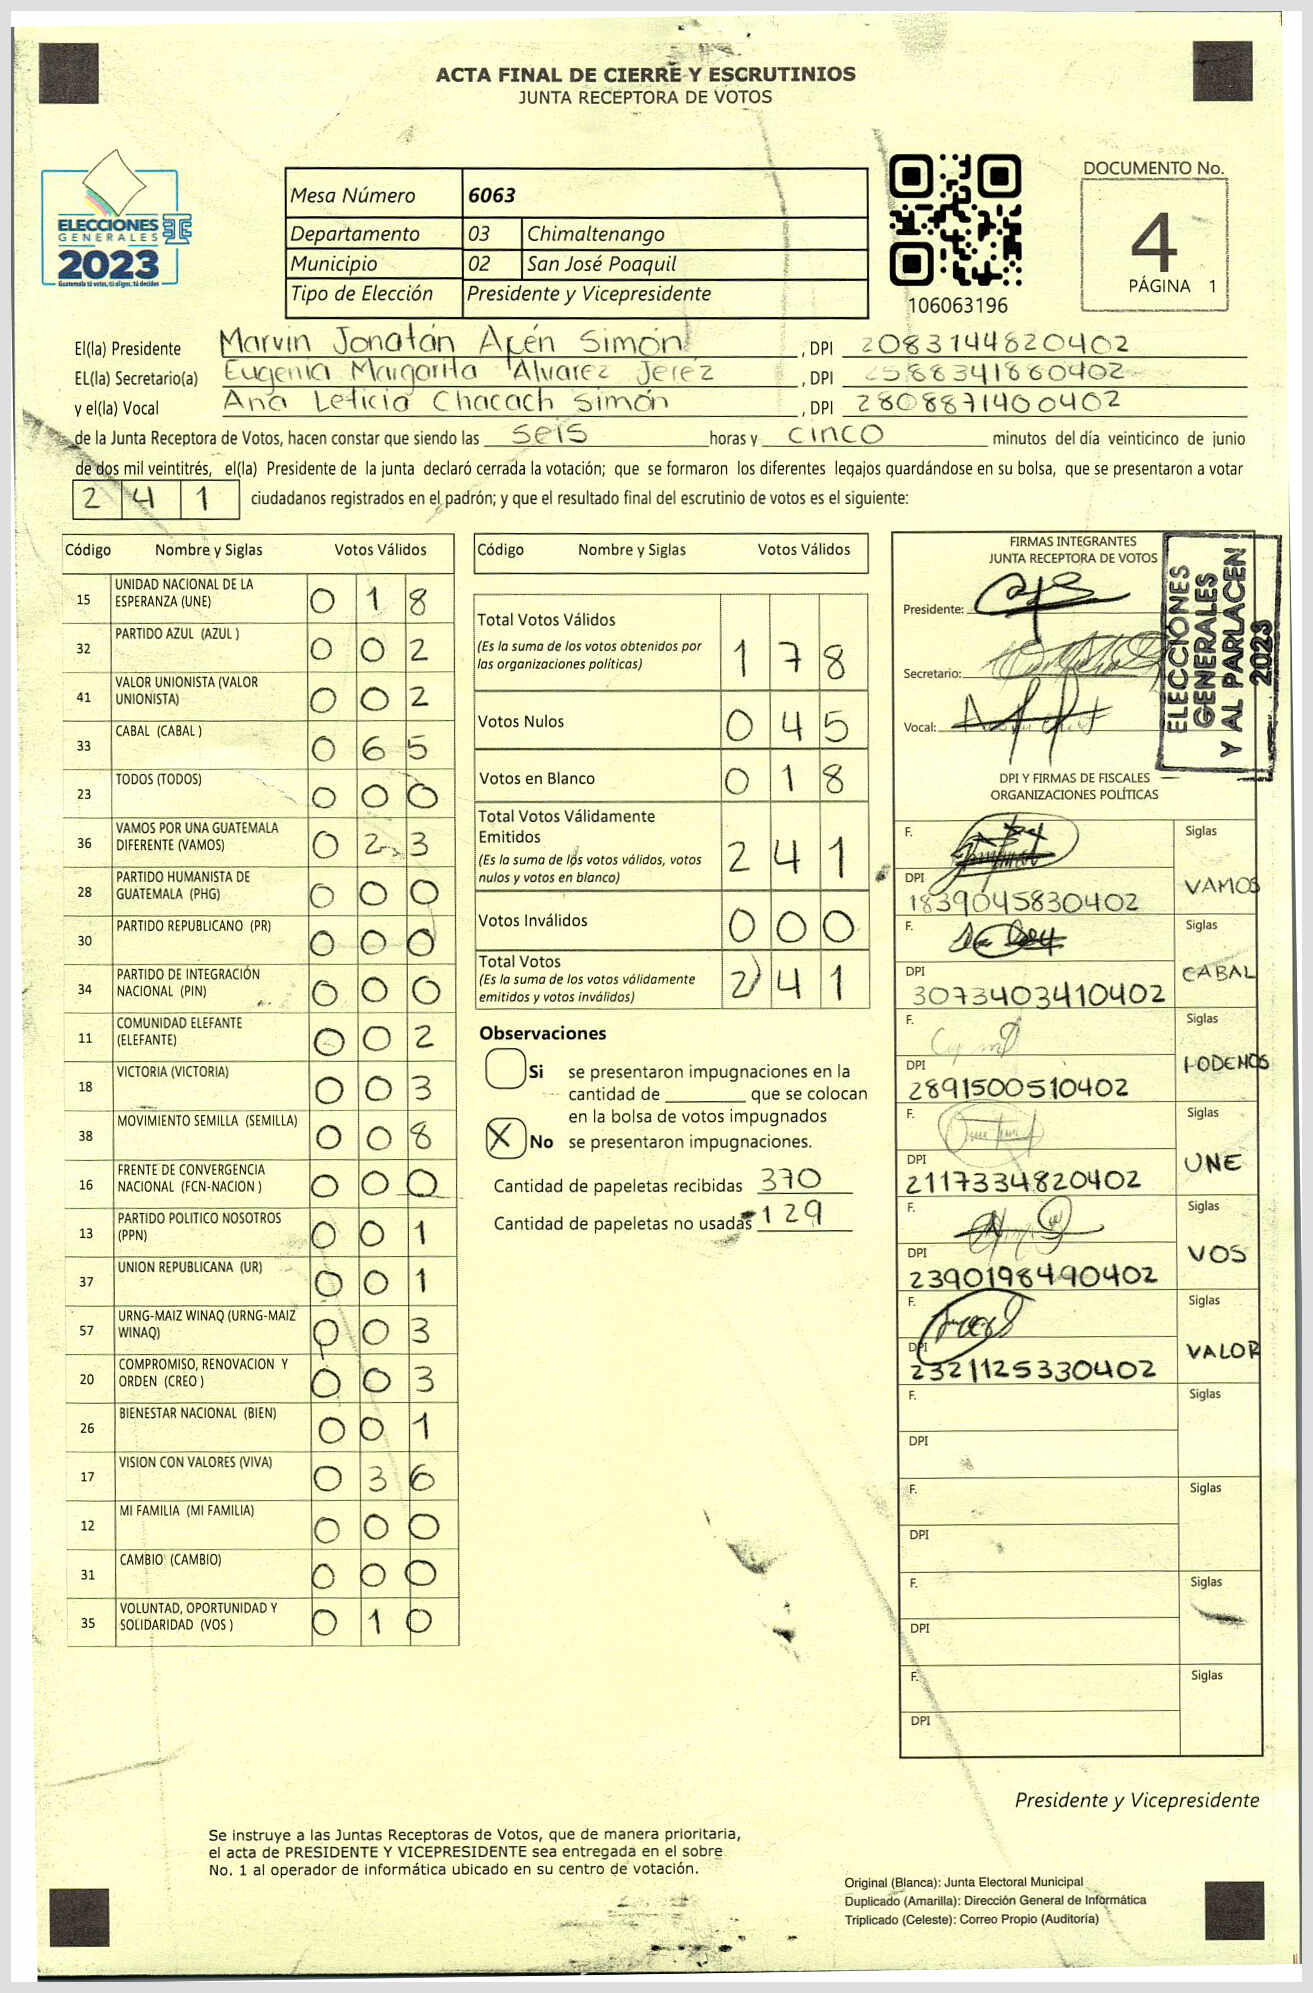 ACTA FINAL DE CIERRE Y ESCRUTINIOS
JUNTA RECEPTORA DE VOTOS
ELECCIONES
GENERALES
2023
Guatemala tú votas, tú eliges, tú decides
Mesa Número 6063
Departamento 03 Chimaltenango
Municipio 02 San José Poaquil
Tipo de Elección Presidente y Vicepresidente
106063196
DOCUMENTO No.
4
PÁGINA 1
El(la) Presidente Marvin Jonatán Apén Simón, DPI 2083144820402
EL(la) Secretario(a) Eugenia Margarita Alvarez Jerez, DPI 2588341860402
y el(la) Vocal Ana Leticia Chacach Simón, DPI 2808871400402
de la Junta Receptora de Votos, hacen constar que siendo las seis horas y cinco minutos del día veinticinco de junio
de dos mil veintitrés, el(la) Presidente de la junta declaró cerrada la votación; que se formaron los diferentes legajos guardándose en su bolsa, que se presentaron a votar
2 4 1 ciudadanos registrados en el padrón; y que el resultado final del escrutinio de votos es el siguiente:
Código Nombre y Siglas Votos Válidos
15 UNIDAD NACIONAL DE LA ESPERANZA (UNE) 0 1 8
32 PARTIDO AZUL (AZUL ) 0 0 2
41 VALOR UNIONISTA (VALOR UNIONISTA) 0 0 2
33 CABAL (CABAL ) 0 6 5
23 TODOS (TODOS) 0 0 0
36 VAMOS POR UNA GUATEMALA DIFERENTE (VAMOS) 0 2 3
28 PARTIDO HUMANISTA DE GUATEMALA (PHG) 0 0 0
30 PARTIDO REPUBLICANO (PR) 0 0 0
34 PARTIDO DE INTEGRACIÓN NACIONAL (PIN) 0 0 0
11 COMUNIDAD ELEFANTE (ELEFANTE) 0 0 2
18 VICTORIA (VICTORIA) 0 0 3
38 MOVIMIENTO SEMILLA (SEMILLA) 0 0 8
16 FRENTE DE CONVERGENCIA NACIONAL (FCN-NACION ) 0 0 0
13 PARTIDO POLITICO NOSOTROS (PPN) 0 0 1
37 UNION REPUBLICANA (UR) 0 0 1
57 URNG-MAIZ WINAQ (URNG-MAIZ WINAQ) 0 0 3
20 COMPROMISO, RENOVACION Y ORDEN (CREO ) 0 0 3
26 BIENESTAR NACIONAL (BIEN) 0 0 1
17 VISION CON VALORES (VIVA) 0 3 6
12 MI FAMILIA (MI FAMILIA) 0 0 0
31 CAMBIO (CAMBIO) 0 0 0
35 VOLUNTAD, OPORTUNIDAD Y SOLIDARIDAD (VOS ) 0 1 0
Código Nombre y Siglas Votos Válidos
Total Votos Válidos
(Es la suma de los votos obtenidos por
las organizaciones políticas) 1 7 8
Votos Nulos 0 4 5
Votos en Blanco 0 1 8
Total Votos Válidamente
Emitidos
(Es la suma de los votos válidos, votos
nulos y votos en blanco) 2 4 1
Votos Inválidos 0 0 0
Total Votos
(Es la suma de los votos válidamente
emitidos y votos inválidos) 2 4 1
Observaciones
Si se presentaron impugnaciones en la
cantidad de ________ que se colocan
en la bolsa de votos impugnados
X No se presentaron impugnaciones.
Cantidad de papeletas recibidas 370
Cantidad de papeletas no usadas 129
FIRMAS INTEGRANTES
JUNTA RECEPTORA DE VOTOS
Presidente:
Secretario:
Vocal:
ELECCIONES
GENERALES
Y AL PARLACEN
2023
DPI Y FIRMAS DE FISCALES
ORGANIZACIONES POLÍTICAS
F. Siglas
DPI 1839045830402 VAMOS
F. Siglas
DPI 3073403410402 CABAL
F. Siglas
DPI 2891500510402 PODEMOS
F. Siglas
DPI 2117334820402 UNE
F. Siglas
DPI 2390198490402 VOS
F. Siglas
DPI 2321125330402 VALOR
F. Siglas
DPI
F. Siglas
DPI
F. Siglas
DPI
F. Siglas
DPI
Presidente y Vicepresidente
Se instruye a las Juntas Receptoras de Votos, que de manera prioritaria,
el acta de PRESIDENTE Y VICEPRESIDENTE sea entregada en el sobre
No. 1 al operador de informática ubicado en su centro de votación.
Original (Blanca): Junta Electoral Municipal
Duplicado (Amarilla): Dirección General de Informática
Triplicado (Celeste): Correo Propio (Auditoría)